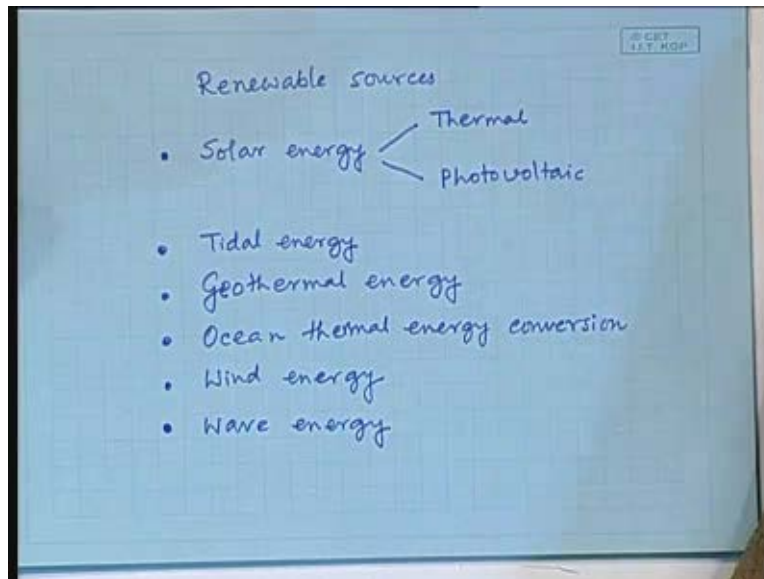 © CET
I.I.T. KGP
Renewable sources
• Solar energy
Thermal
Photovoltaic
• Tidal energy
• Geothermal energy
• Ocean thermal energy conversion
• Wind energy
• Wave energy